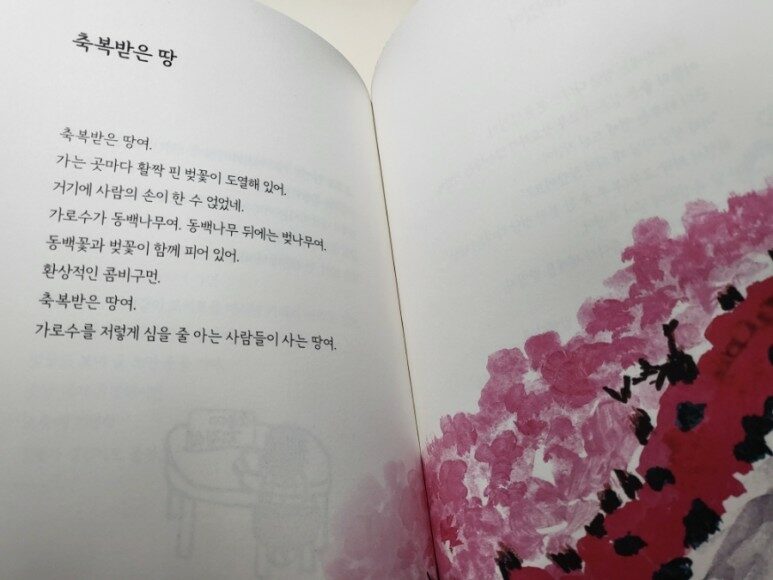 축복받은 땅
축복받은 땅여.
가는 곳마다 활짝 핀 벚꽃이 도열해 있어.
거기에 사람의 손이 한 수 얹었네.
가로수가 동백나무여. 동백나무 뒤에는 벚나무여.
동백꽃과 벚꽃이 함께 피어 있어.
환상적인 콤비구먼.
축복받은 땅여.
가로수를 저렇게 심을 줄 아는 사람들이 사는 땅여.